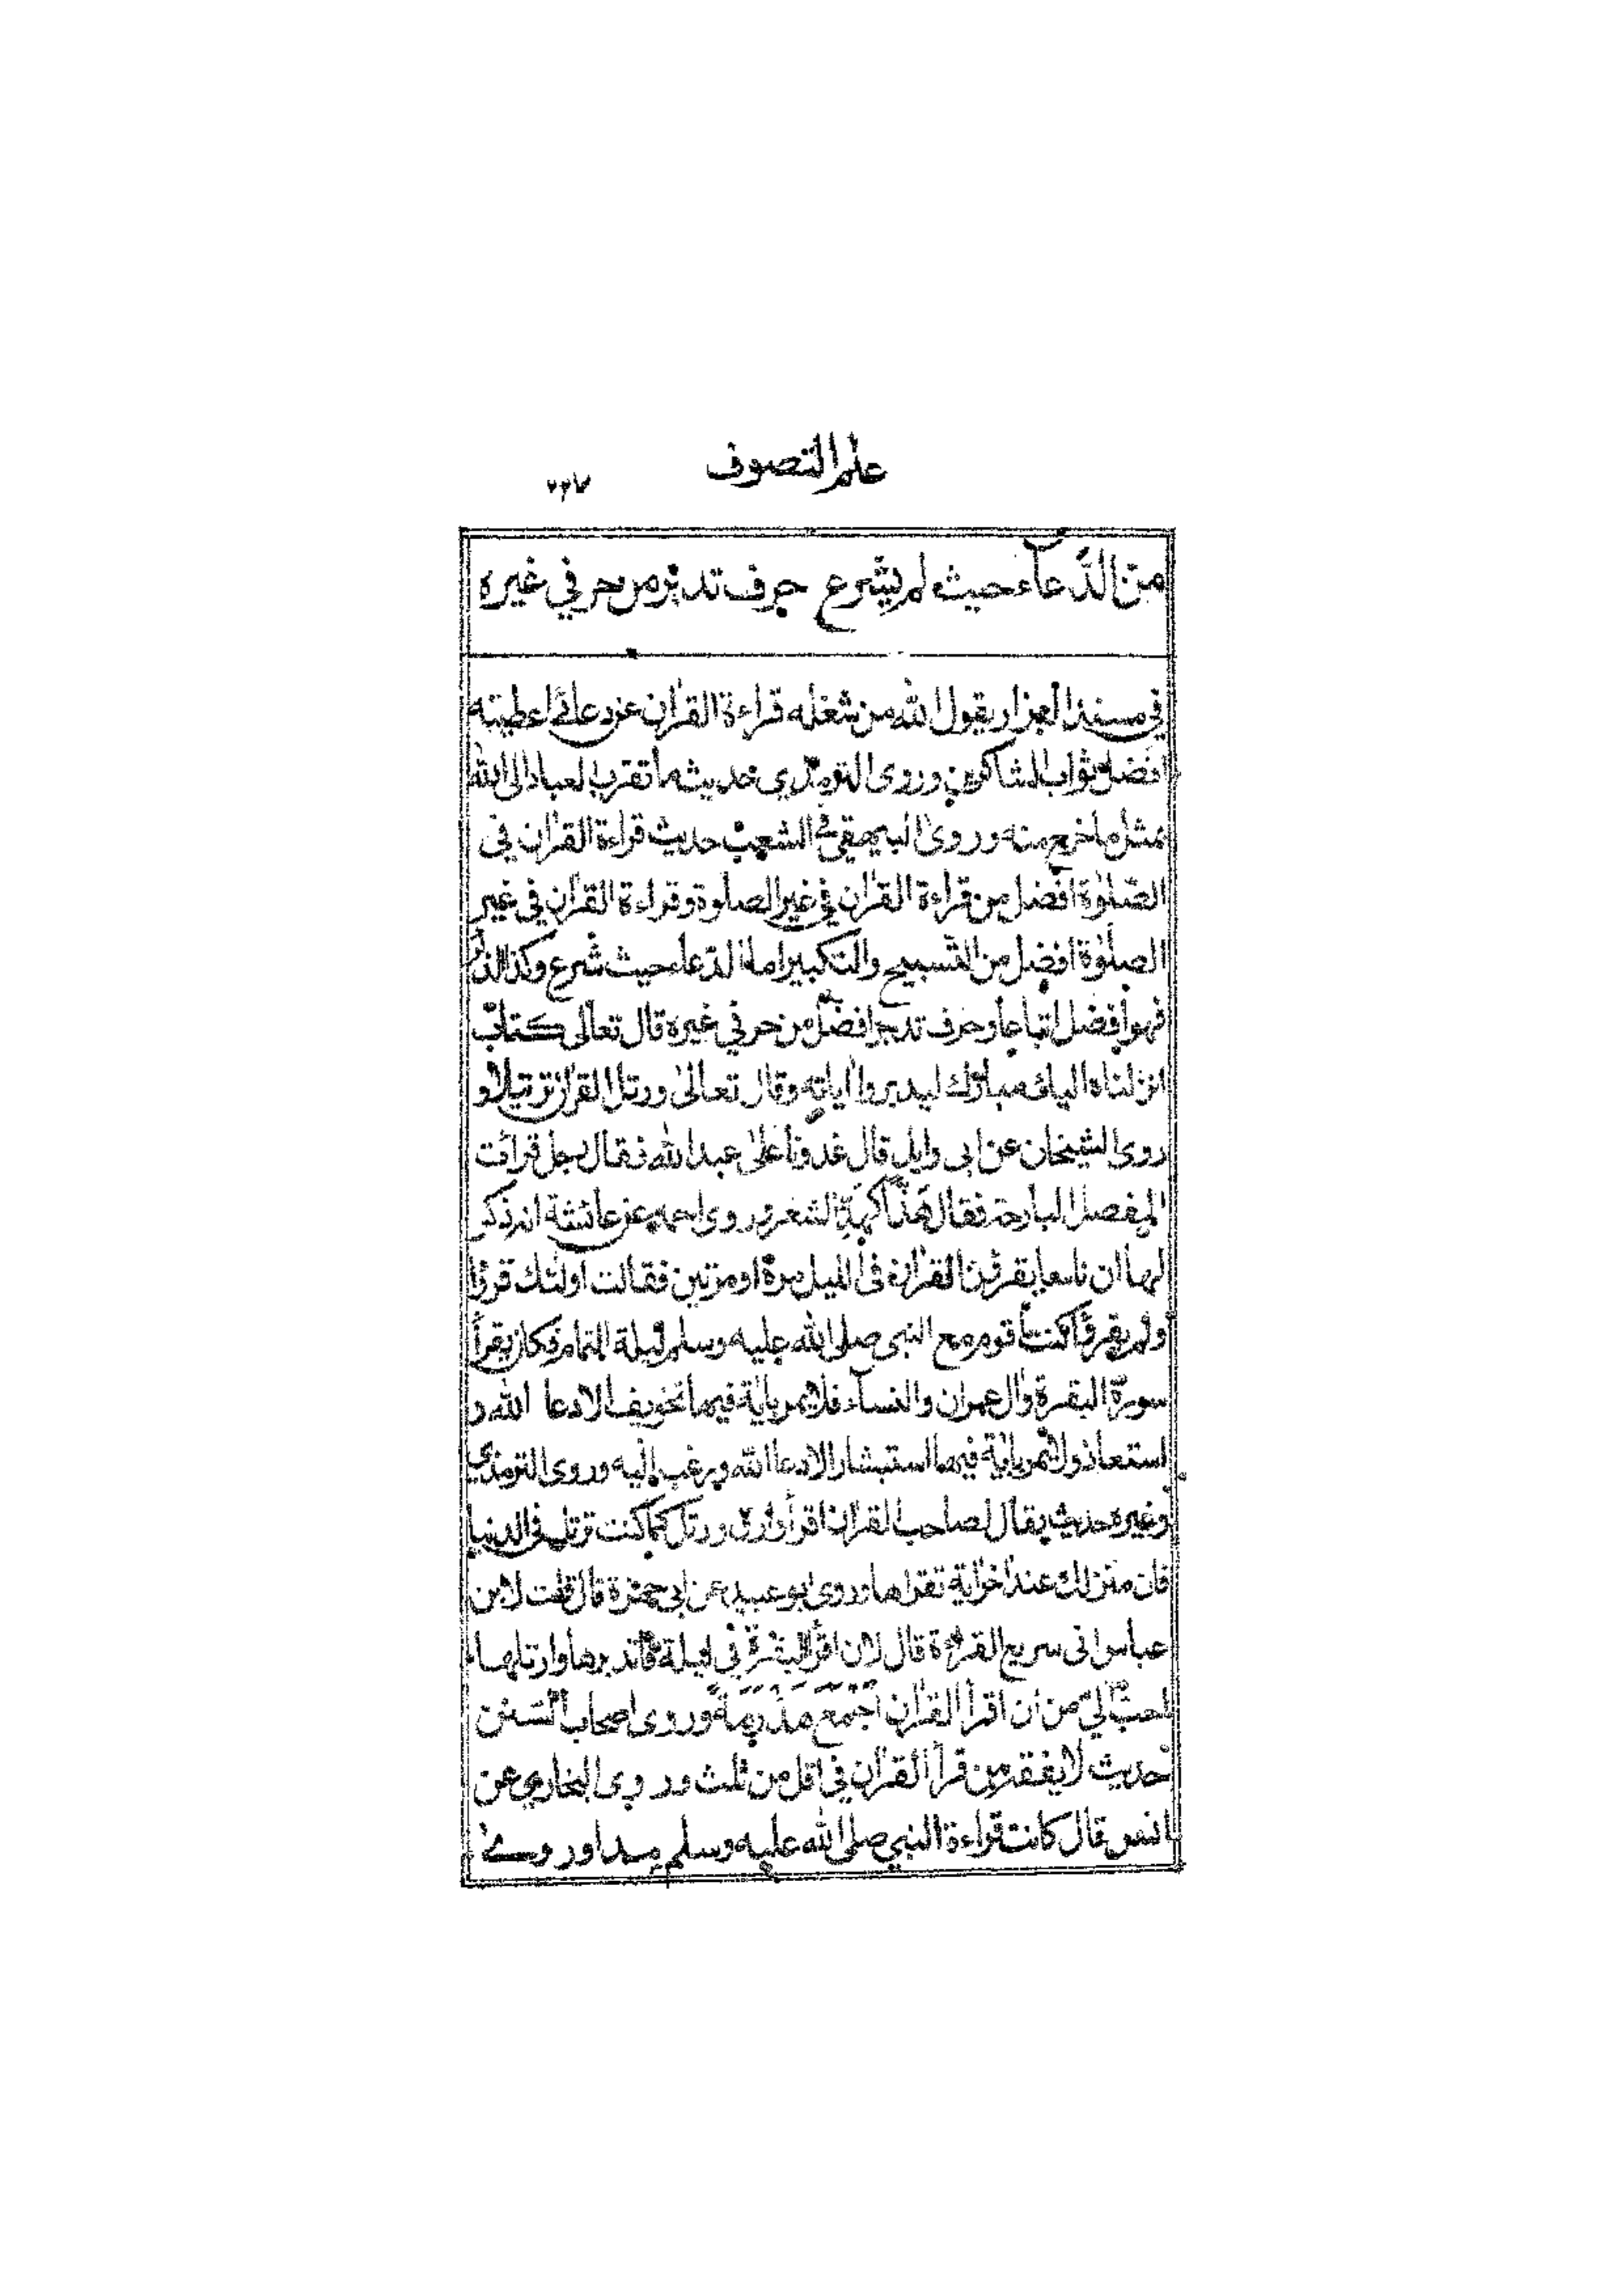 علم التصوف
٢٢٧
من الدّعآء حيث لم يشرع حرف تدبر من حرفي غيره
في مسند البزار يقول الله من شغله قراءة القرآن عن دعائي اعطيته
افضل ثواب الشاكرين وروى الترمذي حديث ما تقرب العباد الى الله
بمثل ما خرج منه وروى البيهقي في الشعب حديث قراءة القرآن في
الصّلوٰة افضل من قراءة القرآن في غير الصلوة وقراءة القرآن في غير
الصلوٰة افضل من التسبيح والتكبير اما الدعاء حيث شرع وكذا الذكر
فهو افضل اتباعا وحرف تدبر افضل من حرفي غيره قال تعالى كتاب
انزلناه اليك مبارك ليدبروا آياته وقال تعالىٰ ورتل القرآن ترتيلا و
روى الشيخان عن ابي وايل قال غدونا على عبد الله فقال رجل قرأت
المفصل البارحة فقال هذّا كهذّ الشعر وروى احمد عن عائشة انه ذكر
لها ان ناسا يقرؤن القرآن في الليل مرة او مرتين فقالت اولئك قرؤا
ولم يقرؤا كنت اقوم مع النبي صلى الله عليه وسلم ليلة التمام فكان يقرأ
سورة البقرة وآل عمران والنسآء فلا يمر بآية فيها تخويف الا دعا الله و
استعاذ ولا يمر بآية فيها استبشار الا دعا الله ورغب اليه وروى الترمذي
وغيره حديث يقال لصاحب القرآن اقرأ وارق ورتل كما كنت ترتل في الدنيا
فان منزلك عند آخر آية تقراها وروى ابو عبيد عن ابي حمزة قال قلت لابن
عباس اني سريع القراءة قال لان اقرأ البقرة في ليلة فاتدبرها وارتلها
احب الي من ان اقرأ القرآن اجمع هذرمة وروى اصحاب السنن
حديث لا يفقه من قرأ القرآن في اقل من ثلث وروى البخاري عن
انس قال كانت قراءة النبي صلى الله عليه وسلم مدا وروے